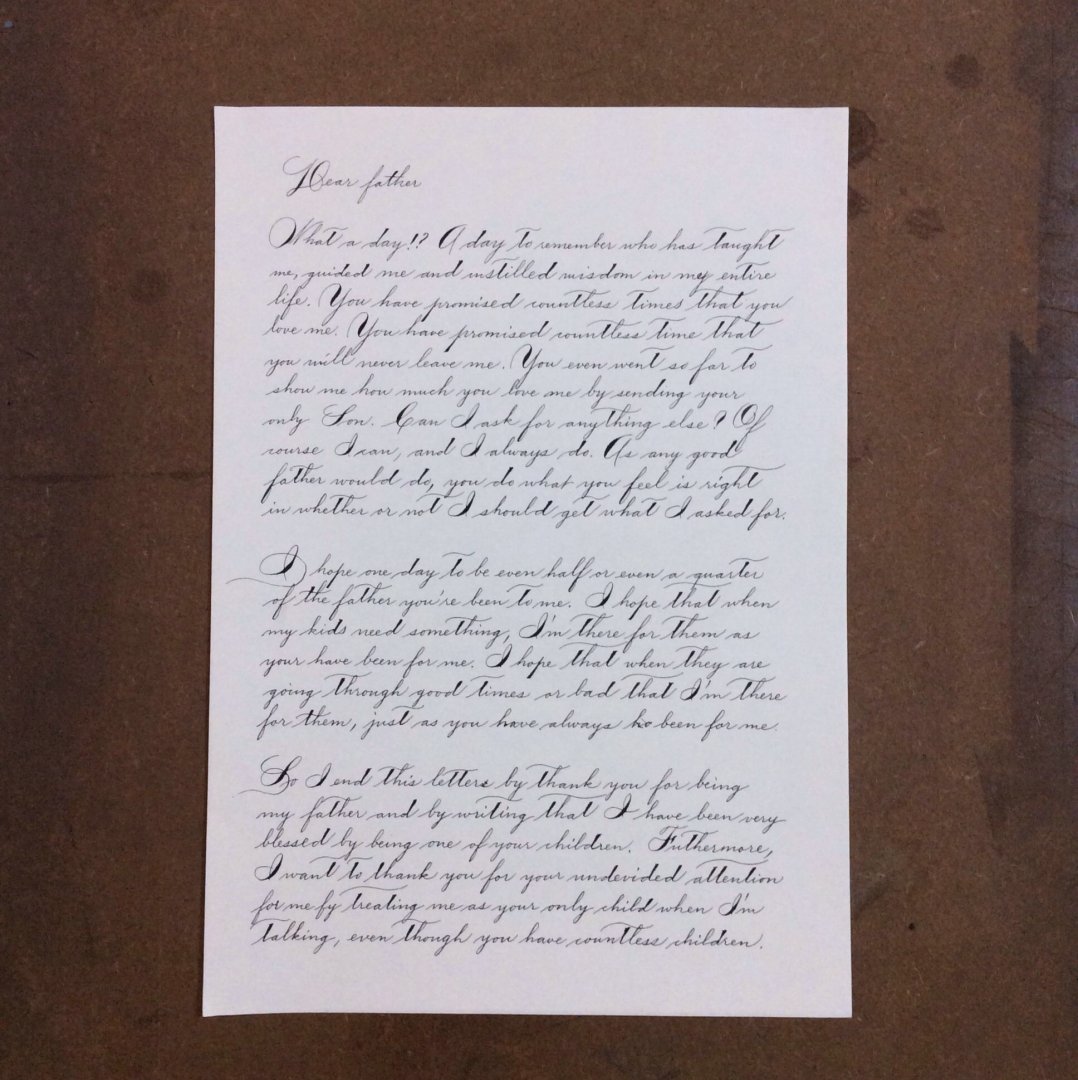 Dear father
What a day!? A day to remember who has taught
me, guided me and instilled wisdom in my entire
life. You have promised countless times that you
love me. You have promised countless time that
you will never leave me. You even went so far to
show me how much you love me by sending your
only Son. Can I ask for anything else? Of
course I can, and I always do. As any good
father would do, you do what you feel is right
in whether or not I should get what I asked for.
I hope one day to be even half or even a quarter
of the father you're been to me. I hope that when
my kids need something, I'm there for them as
your have been for me. I hope that when they are
going through good times or bad that I'm there
for them, just as you have always been for me.
So I end this letters by thank you for being
my father and by writing that I have been very
blessed by being one of your children. Futhermore,
I want to thank you for your undevided attention
for me treating me as your only child when I'm
talking, even though you have countless children.